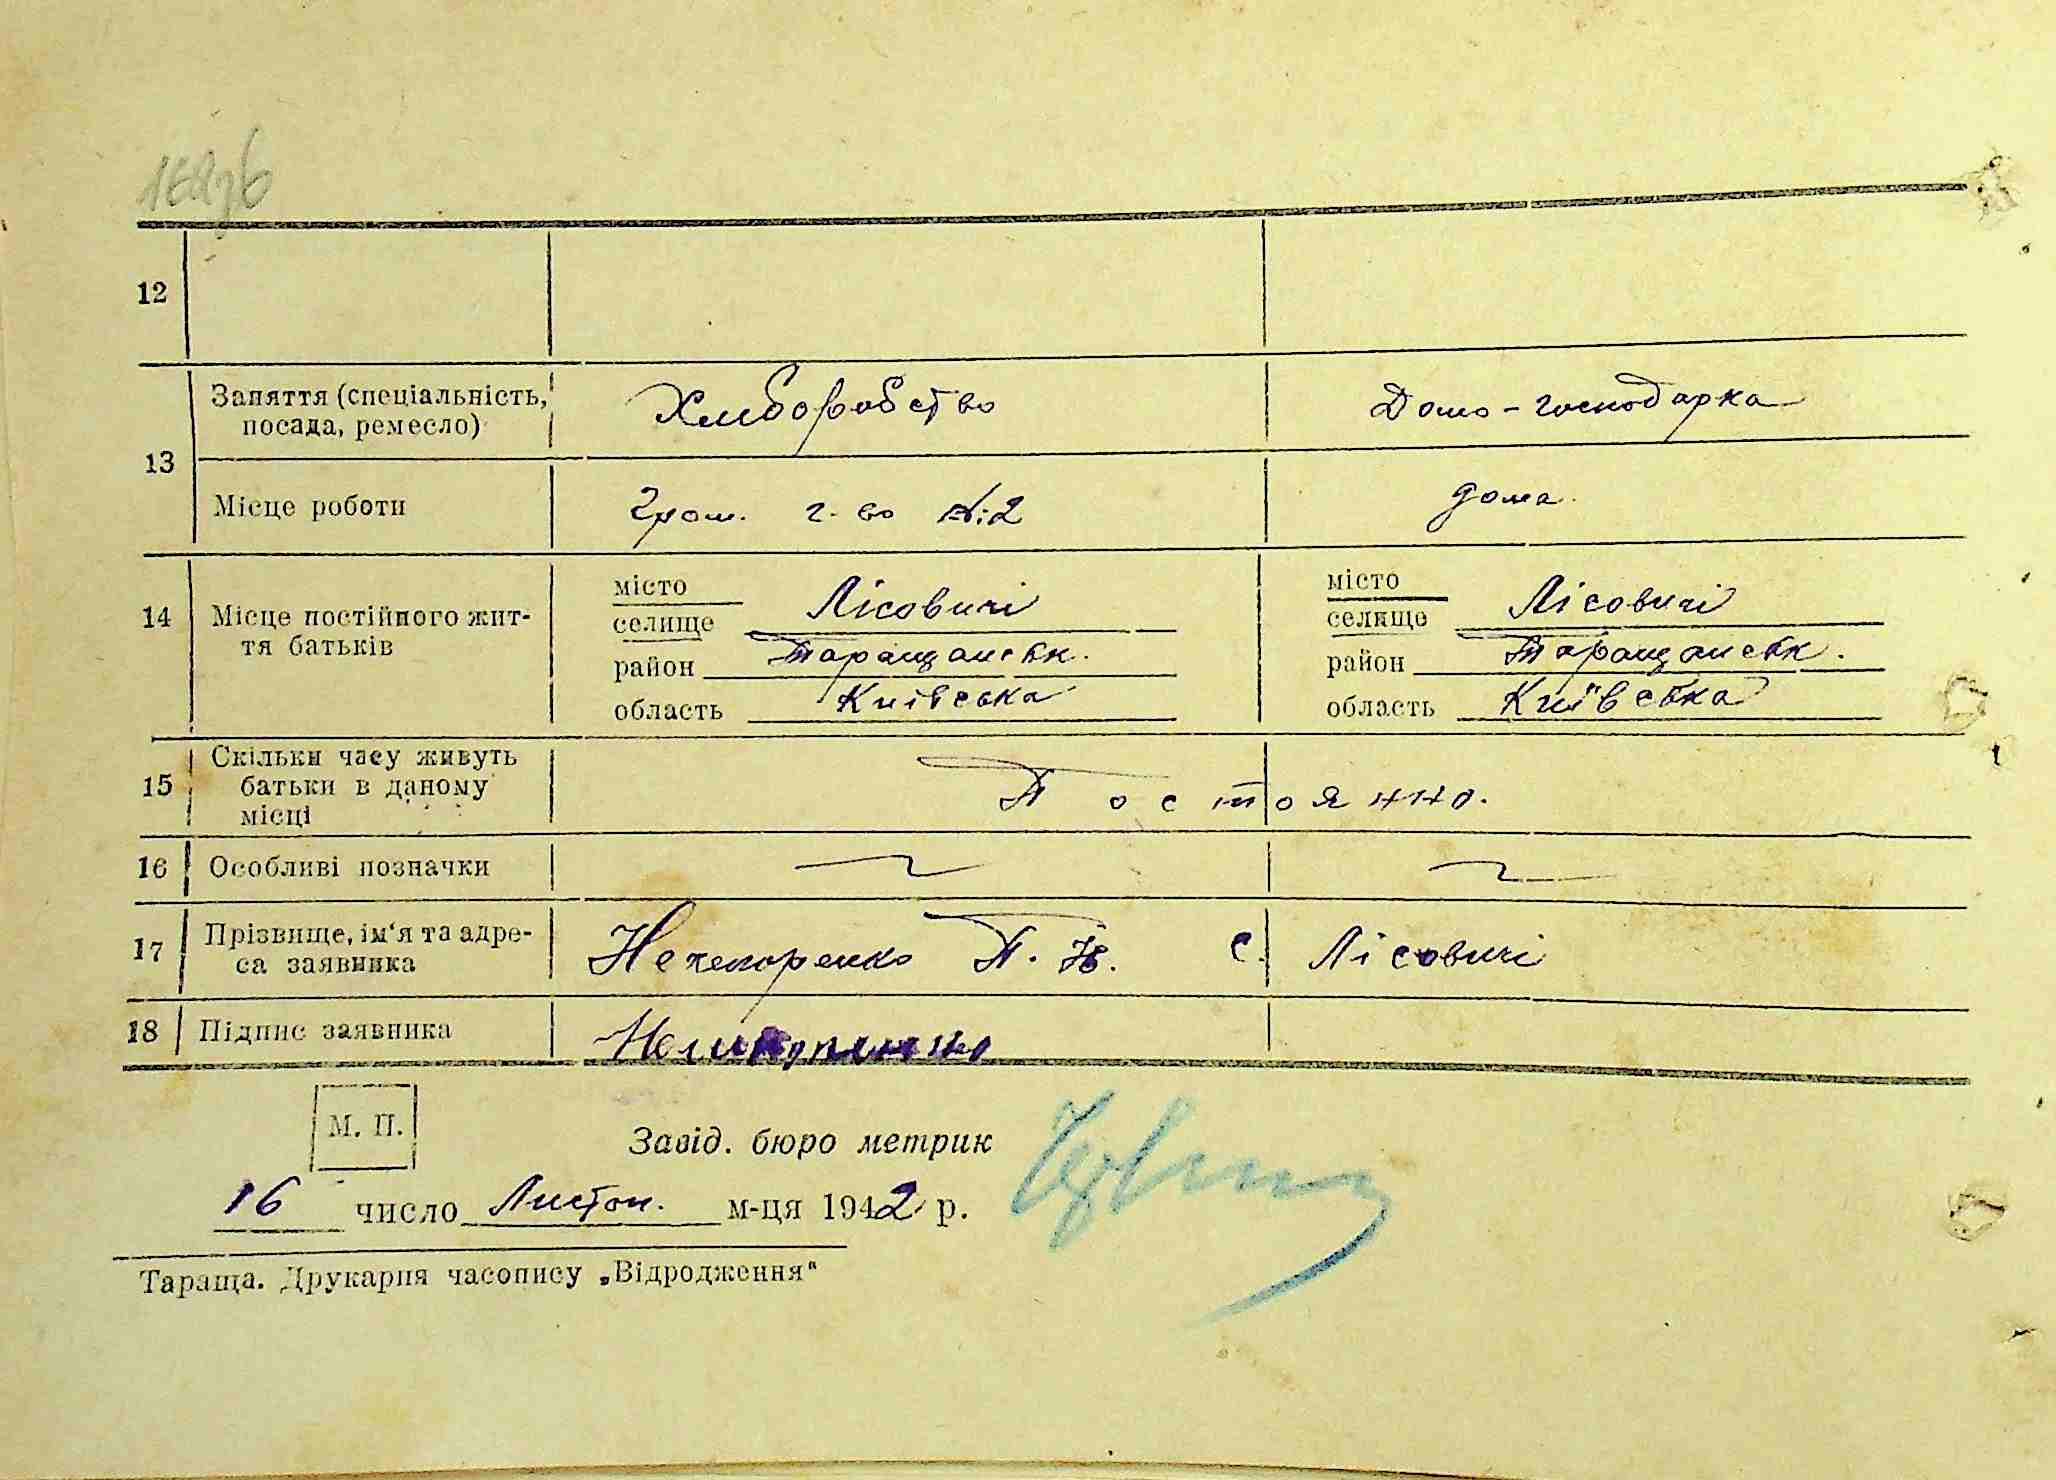 12
13 Заняття (спеціальність, посада, ремесло) Хлиборобство Домо-господарка
Місце роботи Гром. г-во №2 дома
14 Місце постійного життя батьків
місто
селище Лісовичі
район Таращанськ.
область Київська
місто
селище Лісовичі
район Таращанськ.
область Київська
15 Скільки часу живуть батьки в даному місці Постоянно.
16 Особливі позначки
17 Прізвище, ім'я та адреса заявника П. с. Лісовичі
18 Підпис заявника
М. П.
Завід. бюро метрик
16 число Листоп. м-ця 1942 р.
Тараща. Друкарня часопису „Відродження“